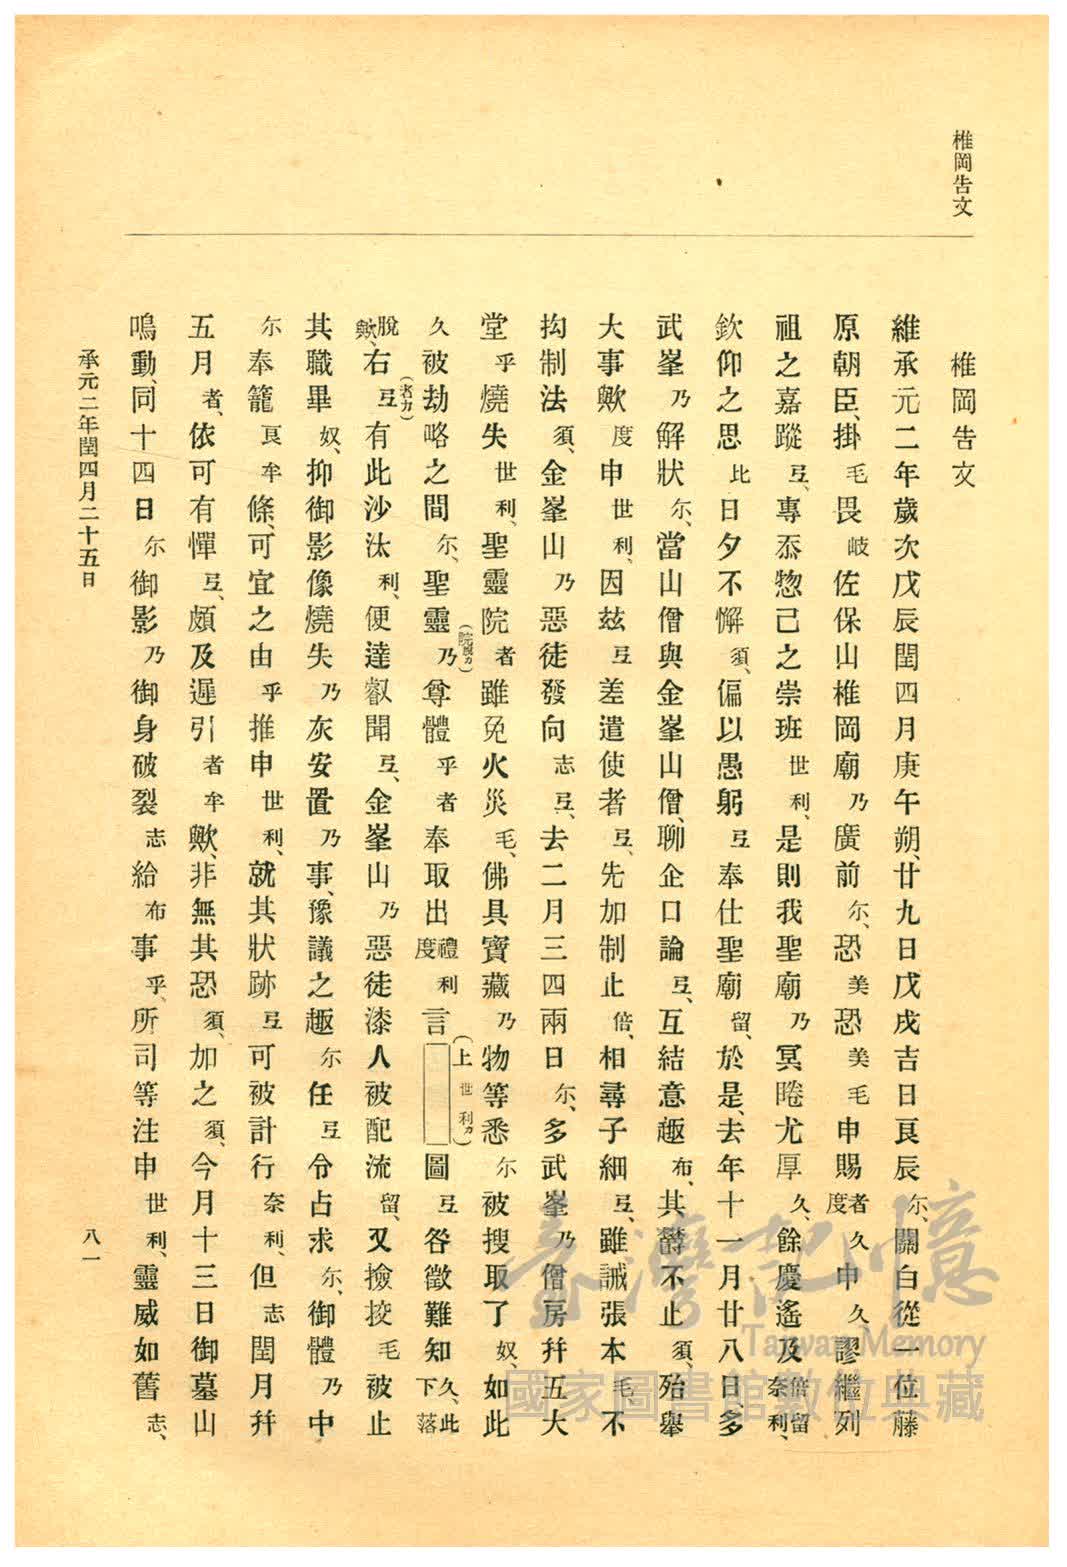 椎岡告文
椎岡告文
維承元二年歲次戊辰閏四月庚午朔、廿九日戊戌吉日良辰尓、關白從一位藤
原朝臣、掛毛畏岐佐保山椎岡廟乃廣前尓、恐美恐美毛申賜者久度申久、謬繼列
祖之嘉蹤弖、專忝惣己之崇班世利、是則我聖廟乃冥睠尤厚久、餘慶遙及倍留奈利、
欽仰之思比日夕不懈須、偏以愚躬弖奉仕聖廟留、於是、去年十一月廿八日、多
武峯乃解狀尓、當山僧與金峯山僧、聊企口論弖、互結意趣布、其欝不止須、殆擧
大事歟度申世利、因玆弖差遣使者弖、先加制止倍、相尋子細弖、雖誡張本毛、不
拘制法須、金峯山乃惡徒發向志弖、去二月三四兩日尓、多武峯乃僧房幷五大
堂乎燒失世利、聖靈院者雖免火災毛、佛具寶藏乃物等悉尓被搜取了奴、如此
久被劫略之間尓、聖靈乃(院脫カ)尊體乎者奉取出禮度利言(上世利カ)圖弖咎徵難知久、此下落
脫歟、右弖(者カ)有此沙汰利、便達叡聞弖、金峯山乃惡徒漆人被配流留、又撿挍毛被止
其職畢奴、抑御影像燒失乃灰安置乃事、豫議之趣尓任弖令占求尓、御體乃中
尓奉籠良牟條、可宜之由乎推申世利、就其狀跡弖可被計行奈利、但志閏月幷
五月者、依可有憚弖、頗及遲引者牟歟、非無其恐須、加之須、今月十三日御墓山
鳴動、同十四日尓御影乃御身破裂志給布事乎、所司等注申世利、靈威如舊志、
承元二年閏四月二十五日
八一
臺灣記憶
Taiwan Memory
國家圖書館數位典藏